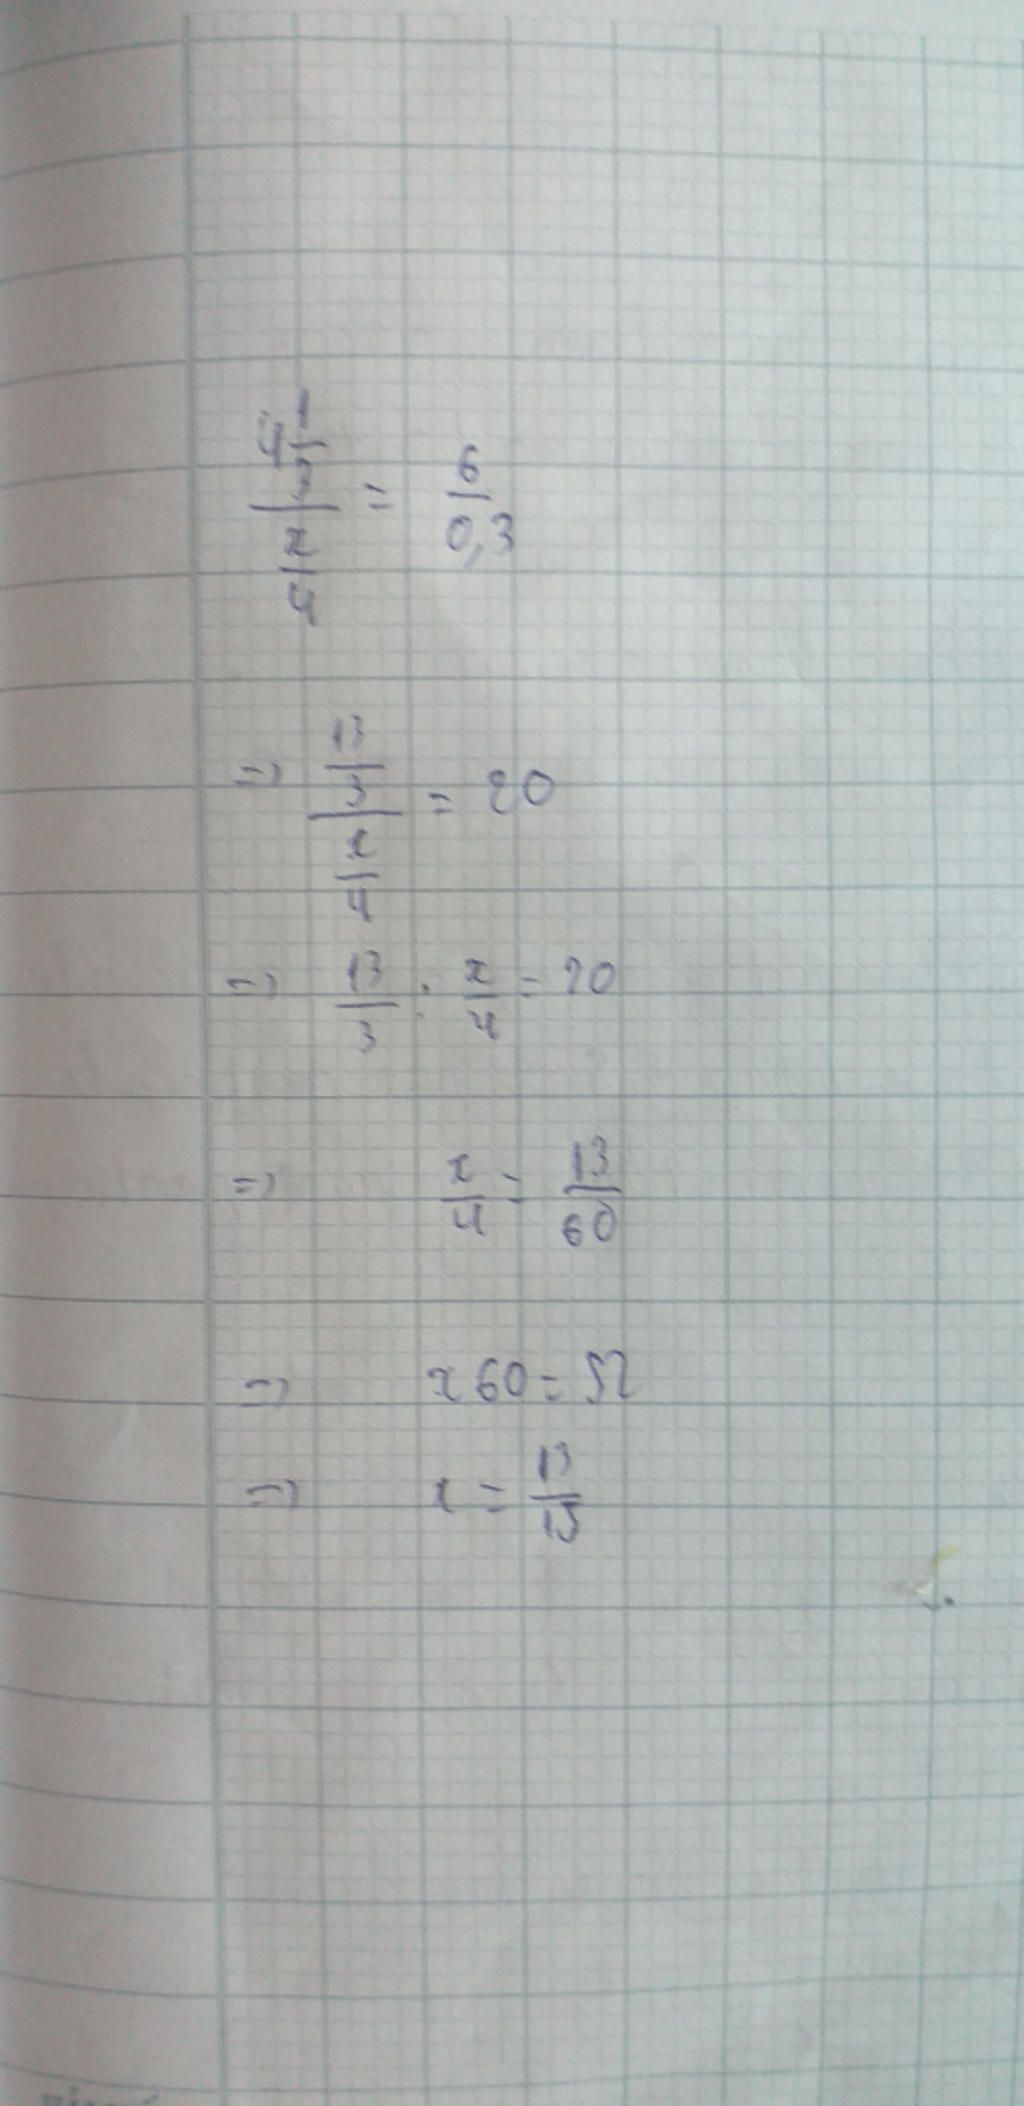 (4 1/3)/(x/4) = 6/0,3
=> (13/3)/(x/4) = 20
=> 13/3 : x/4 = 20
=> x/4 = 13/60
=> x60 = 52
=> x = 13/15